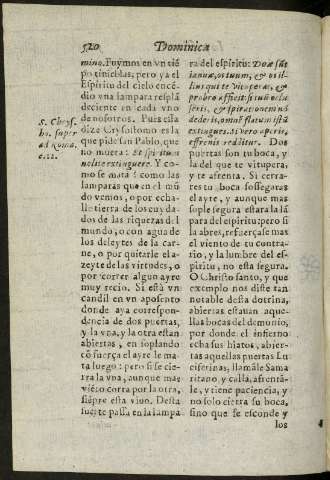 520 Dominica
mino. Fuymos en vn tiẽ
po tinieblas, pero ya el
Espiritu del cielo encẽ
dio vna lampara resplã
deciente en cada vno
de nosotros. Pues esta
dize Crysostomo es la
que pide san Pablo, que
no muera: Et spiritum
nolite extinguere. Y co-
mo se mata? como las
lamparas que en el mũ
do vemos, o por echa-
lle tierra de los cuyda-
dos de las riquezas del
mundo, o con agua de
los deleytes de la car-
ne, o por quitarle el a-
zeyte de las virtudes, o
por correr algun ayre
muy recio. Si està vn
candil en vn aposento
donde aya correspon-
dencia de dos puertas,
y la vna, y la otra estan
abiertas, en soplando
cõ fuerça el ayre le ma-
ta luego: pero si se cie-
rra la vna, aunque mas
viẽto corra por la otra,
siẽpre esta viuo. Desta
suerte passa en la lampa
S. Chrys.
ho. super
ad Roma.
c. 12.
ra del espiritu: Duæ sũt
ianuæ, os tuum, & os il-
lius qui te vituperat, &
probro afficit: si tuũ clau
seris, & spirationem nõ
dederis, omnẽ flatum istũ
extingues. Si vero aperis,
effrenis redditur. Dos
puertas son tu boca, y
la del que te vitupera,
y te afrenta. Si cerra-
res tu boca sossegaras
el ayre, y aunque mas
sople segura estara la lã
para del espiritu: pero si
la abres, refuerçase mas
el viento de tu contra-
rio, y la lumbre del es-
piritu, no esta segura.
O Christo santo, y que
exemplo nos diste tan
notable desta dotrina,
abiertas estauan aque-
llas bocas del demonio,
por donde el infierno
echa sus hiatos, abier-
tas aquellas puertas Lu
ciferinas, llamãle Sama-
ritano, y calla, afrentã-
le, y tiene paciencia, y
no solo cierra su boca,
sino que se esconde y
los